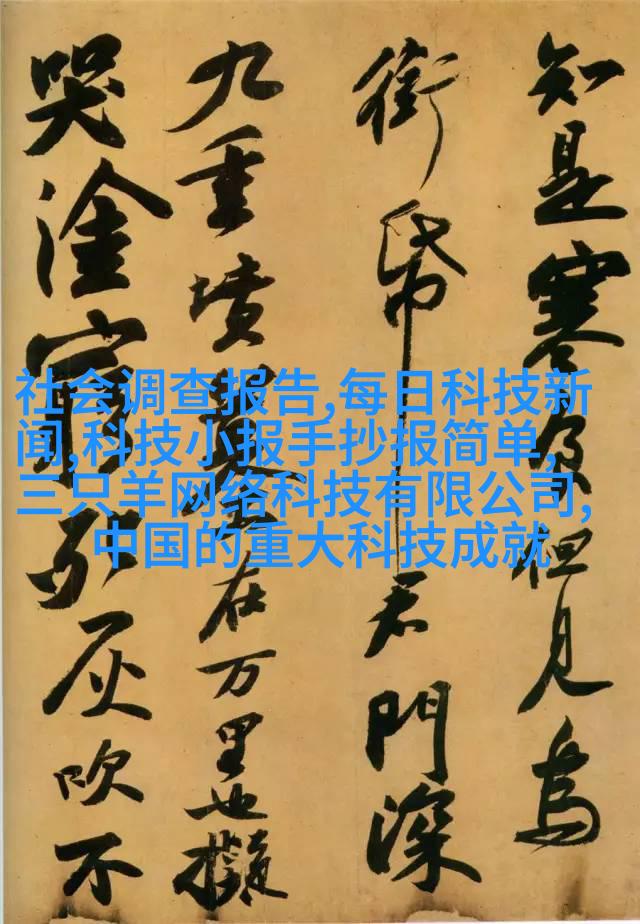 知是寒食但見烏
銜帋君門深
九重墳墓在万里也擬
哭塗窮死灰吹不
社会调查报告,每日科技新
闻,科技小报手抄报简单,
三只羊网络科技有限公司,
中国的重大科技成就